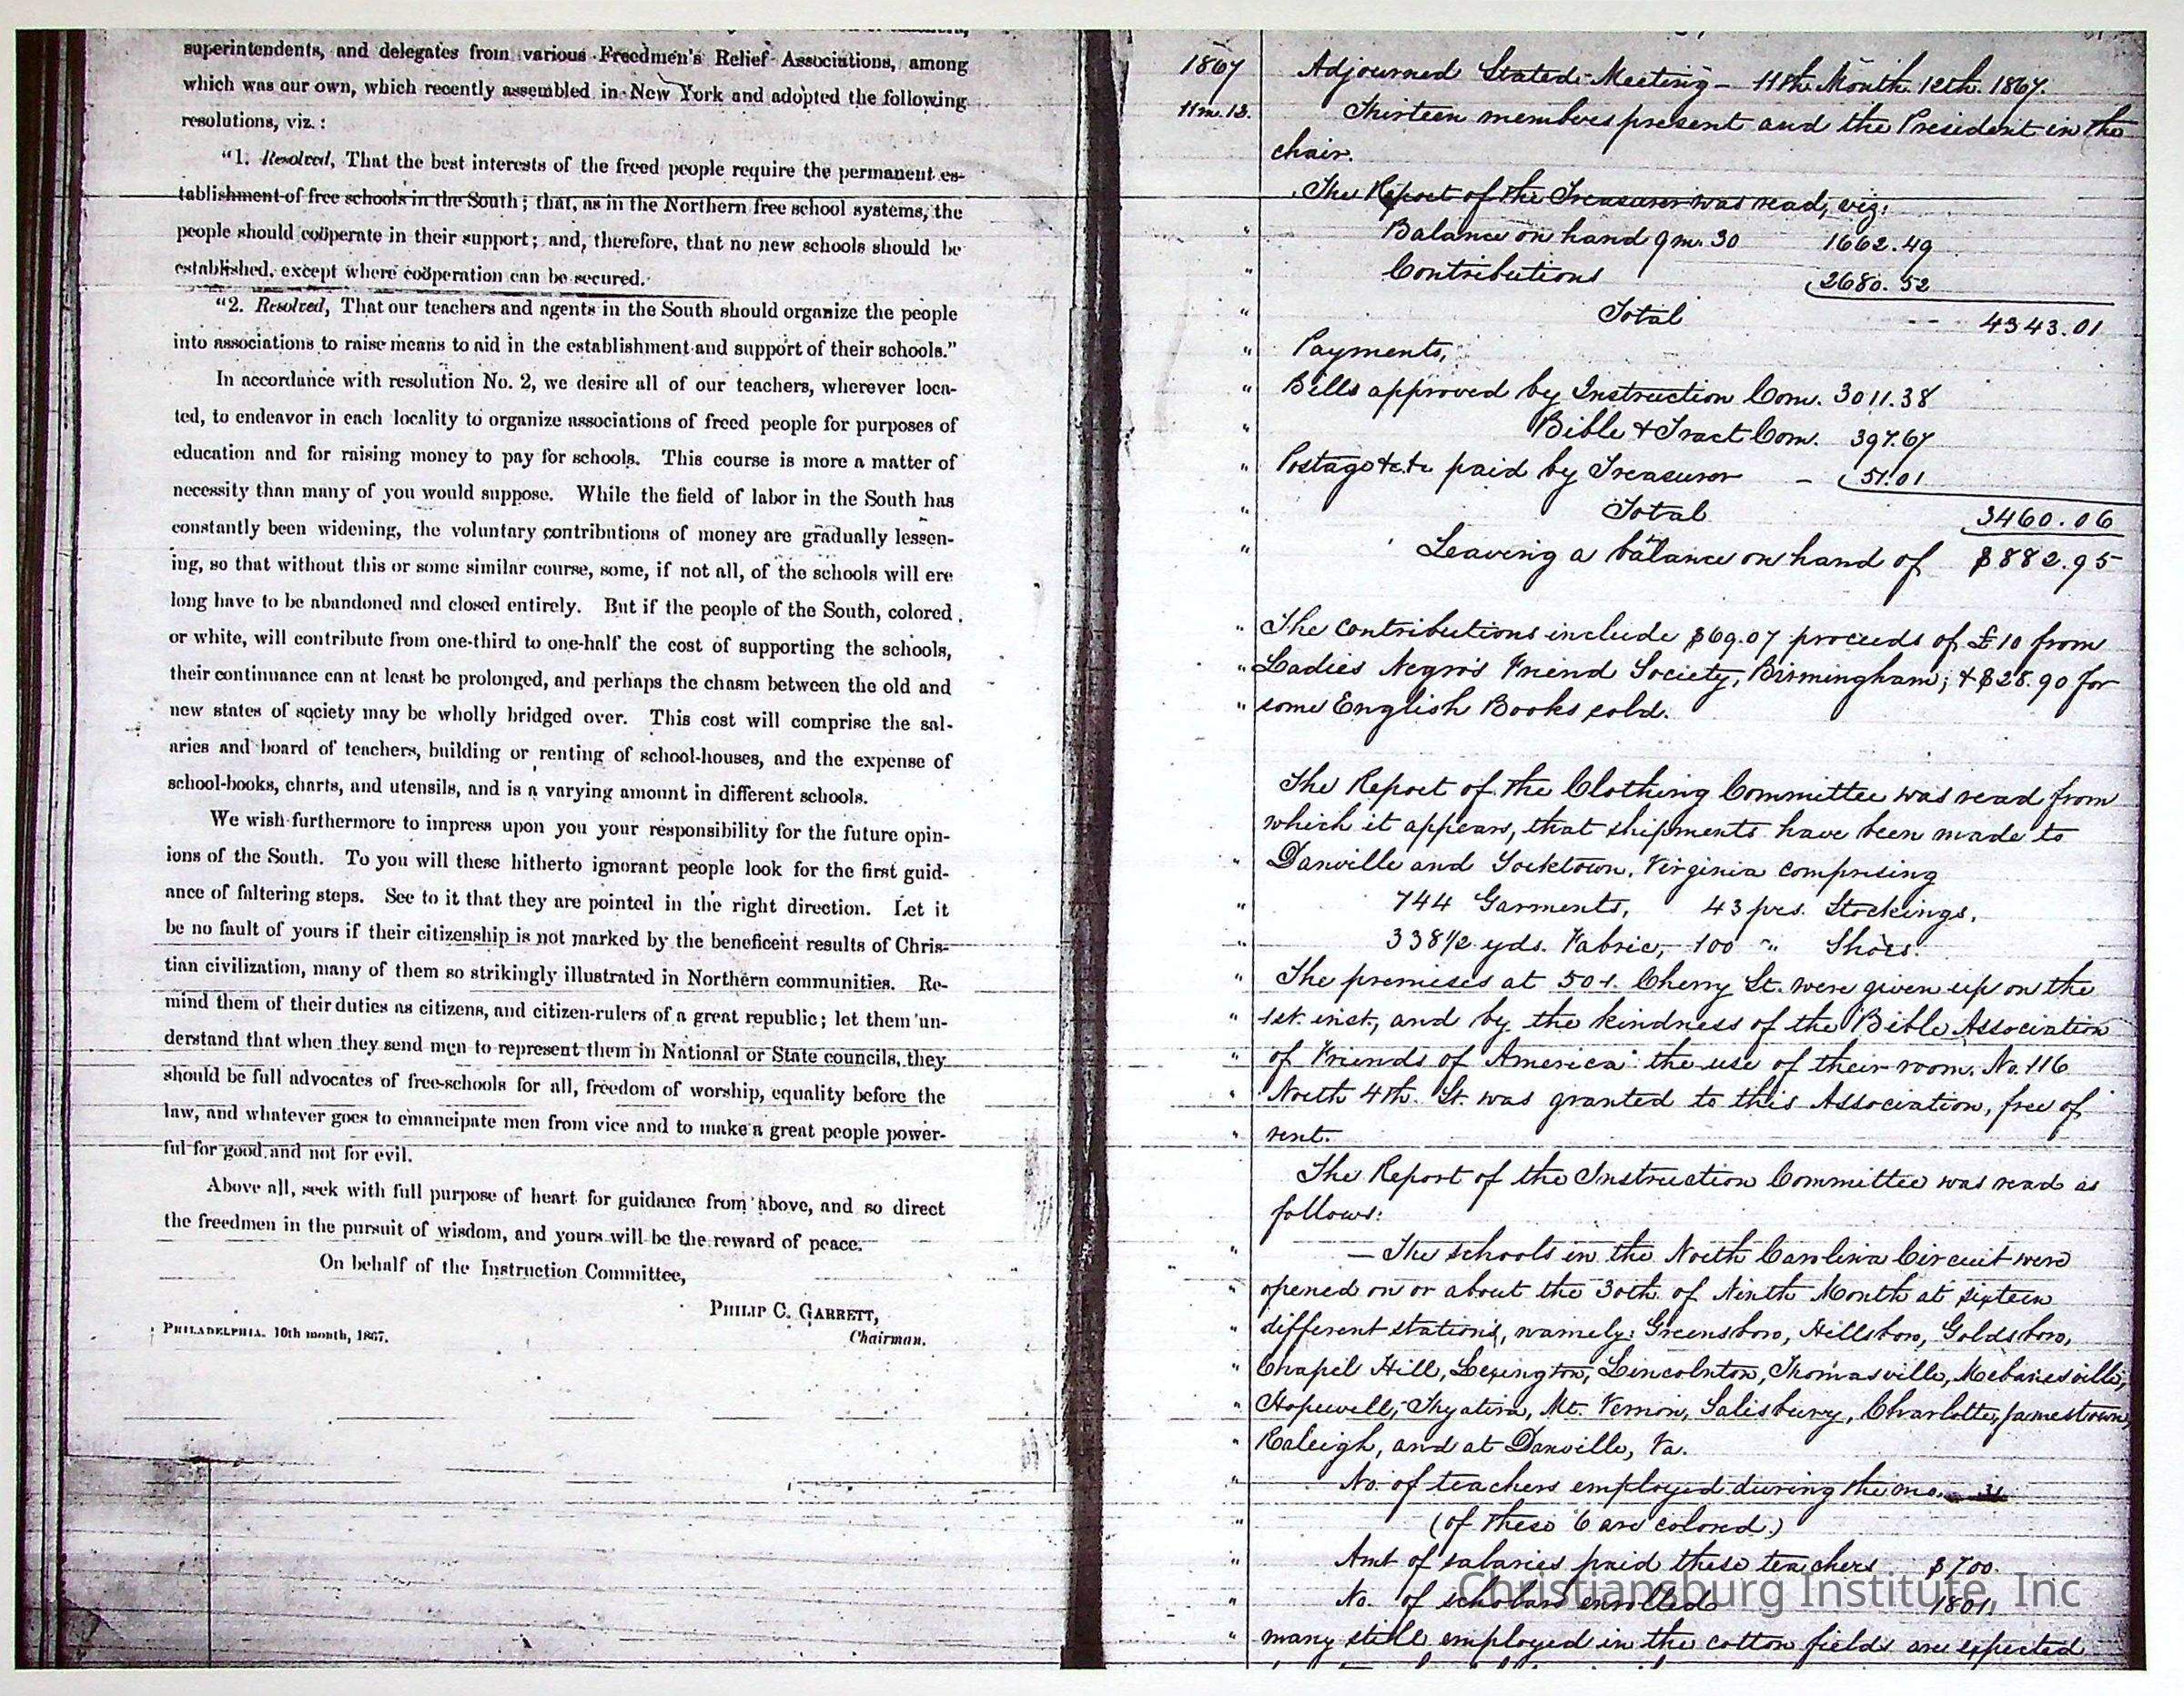 superintendents, and delegates from various Freedmen's Relief Associations, among
which was our own, which recently assembled in New York and adopted the following
resolutions, viz.:
"1. Resolved, That the best interests of the freed people require the permanent es-
tablishment of free schools in the South; that, as in the Northern free school systems, the
people should coöperate in their support; and, therefore, that no new schools should be
established, except where coöperation can be secured.
"2. Resolved, That our teachers and agents in the South should organize the people
into associations to raise means to aid in the establishment and support of their schools."
In accordance with resolution No. 2, we desire all of our teachers, wherever loca-
ted, to endeavor in each locality to organize associations of freed people for purposes of
education and for raising money to pay for schools. This course is more a matter of
necessity than many of you would suppose. While the field of labor in the South has
constantly been widening, the voluntary contributions of money are gradually lessen-
ing, so that without this or some similar course, some, if not all, of the schools will ere
long have to be abandoned and closed entirely. But if the people of the South, colored
or white, will contribute from one-third to one-half the cost of supporting the schools,
their continuance can at least be prolonged, and perhaps the chasm between the old and
new states of society may be wholly bridged over. This cost will comprise the sal-
aries and board of teachers, building or renting of school-houses, and the expense of
school-books, charts, and utensils, and is a varying amount in different schools.
We wish furthermore to impress upon you your responsibility for the future opin-
ions of the South. To you will these hitherto ignorant people look for the first guid-
ance of faltering steps. See to it that they are pointed in the right direction. Let it
be no fault of yours if their citizenship is not marked by the beneficent results of Chris-
tian civilization, many of them so strikingly illustrated in Northern communities. Re-
mind them of their duties as citizens, and citizen-rulers of a great republic; let them un-
derstand that when they send men to represent them in National or State councils, they
should be full advocates of free-schools for all, freedom of worship, equality before the
law, and whatever goes to emancipate men from vice and to make a great people power-
ful for good and not for evil.
Above all, seek with full purpose of heart for guidance from above, and so direct
the freedmen in the pursuit of wisdom, and yours will be the reward of peace.
On behalf of the Instruction Committee,
PHILIP C. GARRETT,
Chairman.
PHILADELPHIA. 10th month, 1867.
1867 Adjourned Stated Meeting - 11th Month 12th. 1867.
11m.12. Thirteen members present and the President in the
chair.
The Report of the Treasurer was read, viz:
" Balance on hand 9m. 30 1662.49
" Contributions 2680.52
" Total -- 4343.01
" Payments,
" Bills approved by Instruction Com. 3011.38
" Bible & Tract Com. 397.67
" Postage &c. &c paid by Treasurer - 51.01
" Total 3460.06
" Leaving a balance on hand of $882.95
" The contributions include $69.07 proceeds of £10 from
" Ladies Negro's Friend Society, Birmingham; & $28.90 for
" some English Books sold.
The Report of the Clothing Committee was read from
which it appears, that shipments have been made to
" Danville and Yocktown, Virginia comprising
" 744 Garments, 43 prs. Stockings,
" 338 1/2 yds. Fabric, 100 " Shoes.
" The premises at 501. Cherry St. were given up on the
" 1st. inst., and by the kindness of the "Bible Association
" of Friends of America" the use of their room, No. 116
" North 4th. St. was granted to this Association, free of
" rent.
The Report of the Instruction Committee was read as
follows:
" — The schools in the North Carolina Circuit were
" opened on or about the 30th. of Ninth Month at sixteen
" different stations, namely: Greensboro, Hillsboro, Goldsboro,
" Chapel Hill, Lexington, Lincolnton, Thomasville, Mebanesville,
" Hopewell, Thyatira, Mt. Vernon, Salisbury, Charlotte, Jamestown,
" Raleigh, and at Danville, Va.
" No. of teachers employed during the mo. 31
" (of these 6 are colored.)
" Amt of salaries paid these teachers $700.
" No. of scholars enrolled 1801.
" many still employed in the cotton fields are expected
Christiansburg Institute, Inc